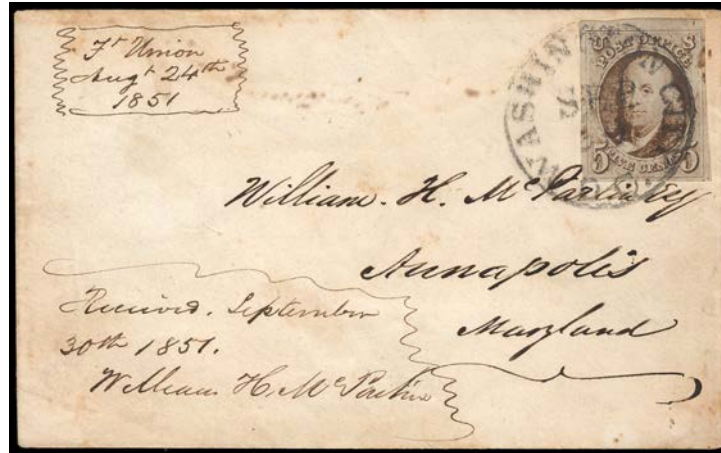 Ft Union
Augt 24th
1851
WASHINGTON CITY
POST OFFICE
5 FIVE CENTS 5
William. H. McParlin Esq
Annapolis
Maryland
Received. September
30th 1851.
William H. McParlin